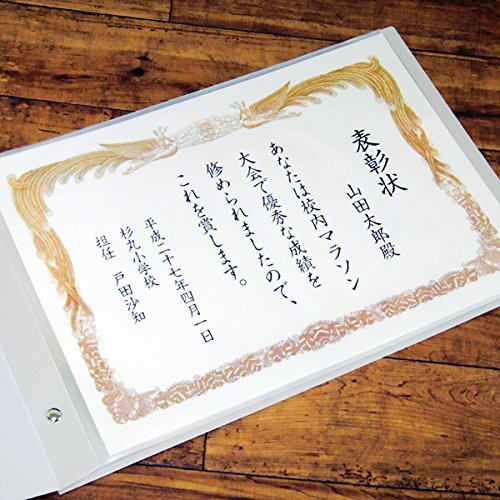 表彰状
山田太郎殿
あなたは校内マラソン
大会で優秀な成績を
修められましたので、
これを賞します。
平成二十七年四月一日
杉丸小学校
担任 戸田沙知